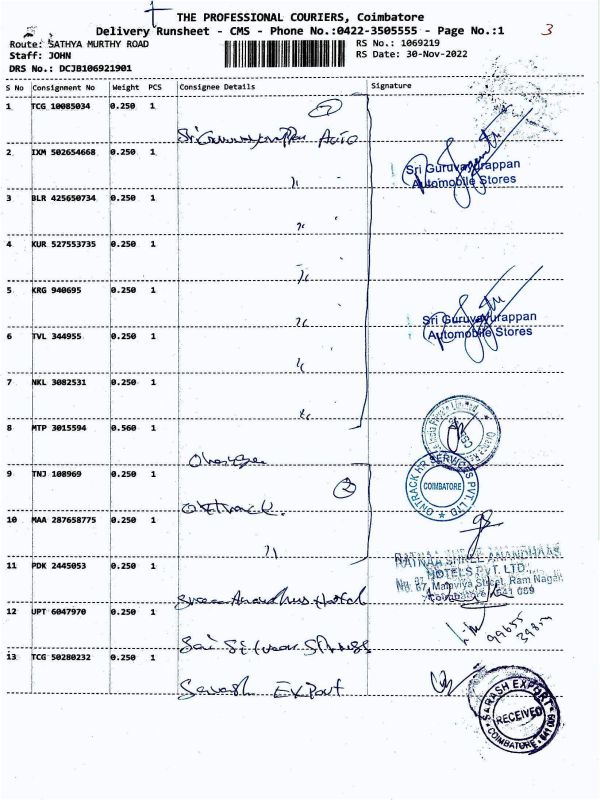 THE PROFESSIONAL COURIERS, Coimbatore
Delivery Runsheet - CMS - Phone No.:0422-3505555 - Page No.:1
3
Route: SATHYA MURTHY ROAD
RS No.: 1069219
Staff: JOHN
RS Date: 30-Nov-2022
DRS No.: DCJB106921901
S No Consignment No Weight PCS Consignee Details Signature
1 TCG 10085034 0.250 1
Sri Guruvayurappan Auto
2 IXM 502654668 0.250 1
Sri Guruvayurappan
Automobile Stores
3 BLR 425650734 0.250 1
4 KUR 527553735 0.250 1
5 KRG 940695 0.250 1
Sri Guruvayurappan
Automobile Stores
6 TVL 344955 0.250 1
7 NKL 3082531 0.250 1
8 MTP 3015594 0.560 1
9 TNJ 108969 0.250 1
2
Ontrack.
ONTRACK HR SERVICES PVT. LTD
COIMBATORE
10 MAA 287658775 0.250 1
11 PDK 2445053 0.250 1
RATNAA SHREE ANANDHAAS
HOTELS PVT. LTD.,
No. 67, Malaviya Street, Ram Nagar,
Coimbatore - 641 009
Sree Anandhas Hotel
12 UPT 6047970 0.250 1
Sai Silver Springs
13 TCG 50280232 0.250 1
Sarash Export
SARASH EXPORT
RECEIVED
COIMBATORE - 641 009